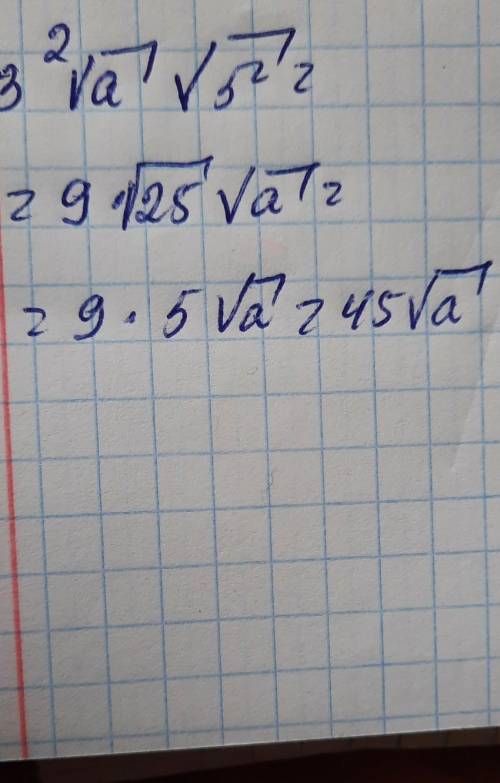 3² √a √5² =
= 9 · √25 √a =
= 9 · 5 √a = 45 √a